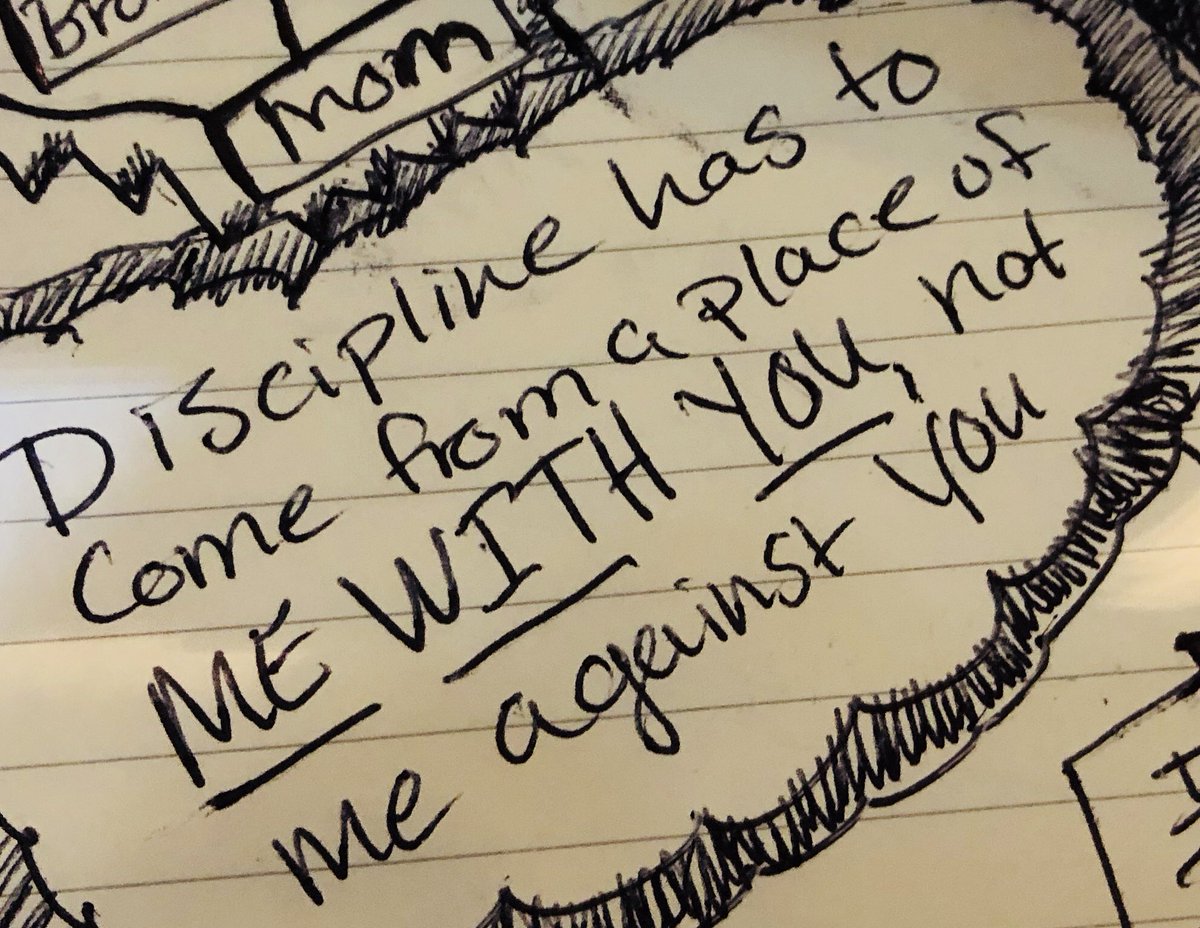 Mom
Discipline has to
come from a place of
ME WITH YOU, not
me against you